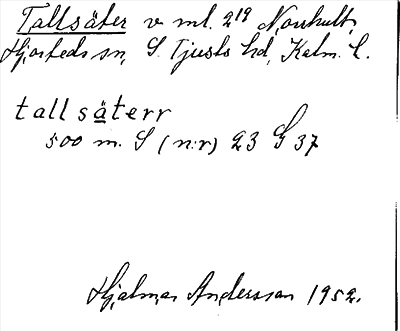 Tallsäter v ml. 2¹⁹ Norrhult,
Hjorteds sn, S. Tjusts hd, Kalm. l.
tallsäterr
500 m. S (n:r) 23 G 37
Hjalmar Andersson 1952.